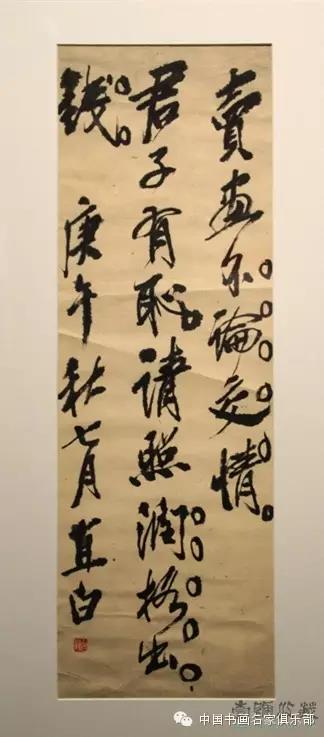 賣畫不論交情。
君子有恥請照潤格出
錢。庚午秋七月直白
中国书画名家俱乐部